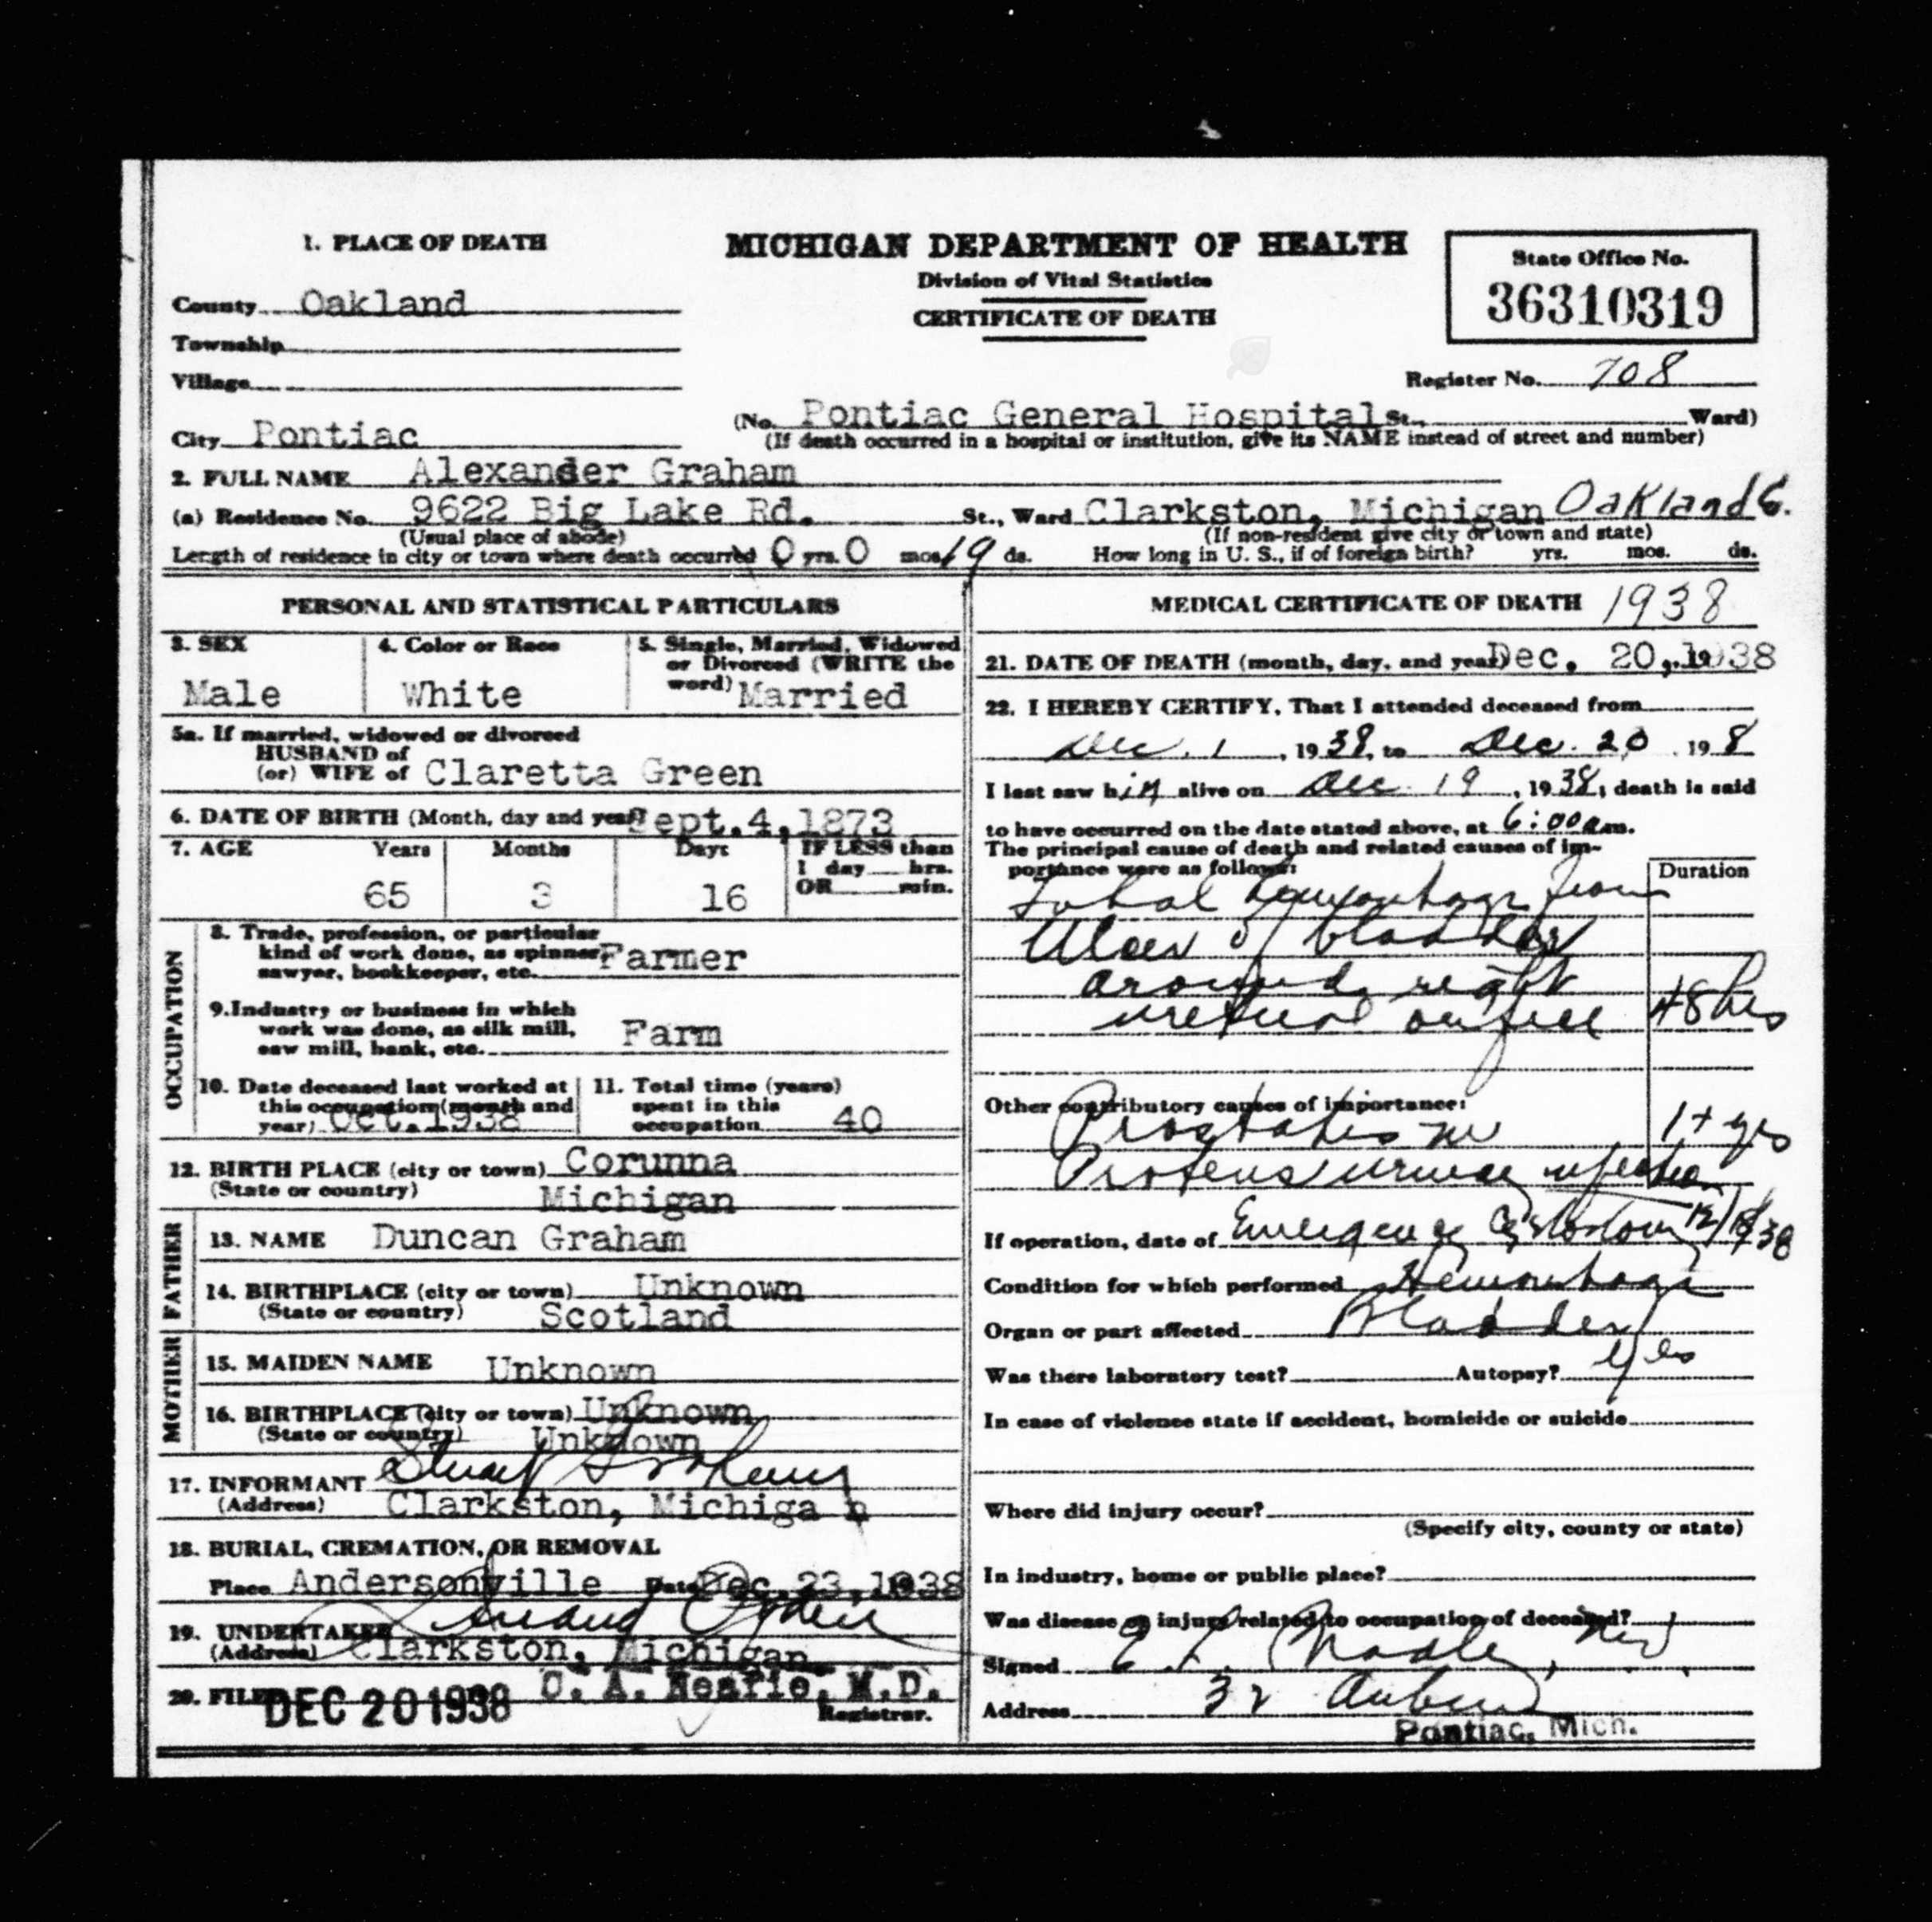 1. PLACE OF DEATH
MICHIGAN DEPARTMENT OF HEALTH
Division of Vital Statistics
CERTIFICATE OF DEATH
State Office No.
36310319
County Oakland
Township
Village
Register No. 708
City Pontiac
(No. Pontiac General Hospital St., Ward)
(If death occurred in a hospital or institution, give its NAME instead of street and number)
2. FULL NAME Alexander Graham
(a) Residence No. 9622 Big Lake Rd. St., Ward Clarkston, Michigan Oakland Co.
(Usual place of abode) (If non-resident give city or town and state)
Length of residence in city or town where death occurred 0 yrs. 0 mos. 19 ds. How long in U. S., if of foreign birth? yrs. mos. ds.
PERSONAL AND STATISTICAL PARTICULARS
3. SEX
Male
4. Color or Race
White
5. Single, Married, Widowed
or Divorced (WRITE the
word) Married
5a. If married, widowed or divorced
HUSBAND of
(or) WIFE of Claretta Green
6. DATE OF BIRTH (Month, day and year) Sept. 4, 1873
7. AGE Years Months Days IF LESS than
1 day hrs.
OR min.
65 3 16
OCCUPATION
8. Trade, profession, or particular
kind of work done, as spinner,
sawyer, bookkeeper, etc. Farmer
9. Industry or business in which
work was done, as silk mill,
saw mill, bank, etc. Farm
10. Date deceased last worked at
this occupation (month and
year) Oct. 1938
11. Total time (years)
spent in this
occupation 40
12. BIRTH PLACE (city or town) Corunna
(State or country) Michigan
FATHER
13. NAME Duncan Graham
14. BIRTHPLACE (city or town) Unknown
(State or country) Scotland
MOTHER
15. MAIDEN NAME Unknown
16. BIRTHPLACE (city or town) Unknown
(State or country) Unknown
17. INFORMANT Stuart Graham
(Address) Clarkston, Michiga n
18. BURIAL, CREMATION, OR REMOVAL
Place Andersonville Date Dec. 23, 1938
19. UNDERTAKER
(Address) Clarkston, Michigan
20. FILED DEC 20 1938 C. A. Neafie, M.D.
Registrar.
MEDICAL CERTIFICATE OF DEATH 1938
21. DATE OF DEATH (month, day, and year) Dec. 20, 1938
22. I HEREBY CERTIFY, That I attended deceased from
Dec. 1, 1938, to Dec. 20 198
I last saw him alive on Dec 19, 1938, death is said
to have occurred on the date stated above, at 6:00 a.m.
The principal cause of death and related causes of im-
portance were as follows:
Duration
hemorrhage from
Ulcer of bladder
around right
ureteral orifice 48 hrs
Other contributory causes of importance:
Prostatism 1+ yrs
Proteus urinary infection
If operation, date of Emergency Cystotomy 12/18/38
Condition for which performed Hemorrhage
Organ or part affected Bladder
Was there laboratory test? Autopsy? Yes
In case of violence state if accident, homicide or suicide
Where did injury occur?
(Specify city, county or state)
In industry, home or public place?
Was disease or injury related to occupation of deceased? No
Signed
Address 32 Auburn
Pontiac, Mich.